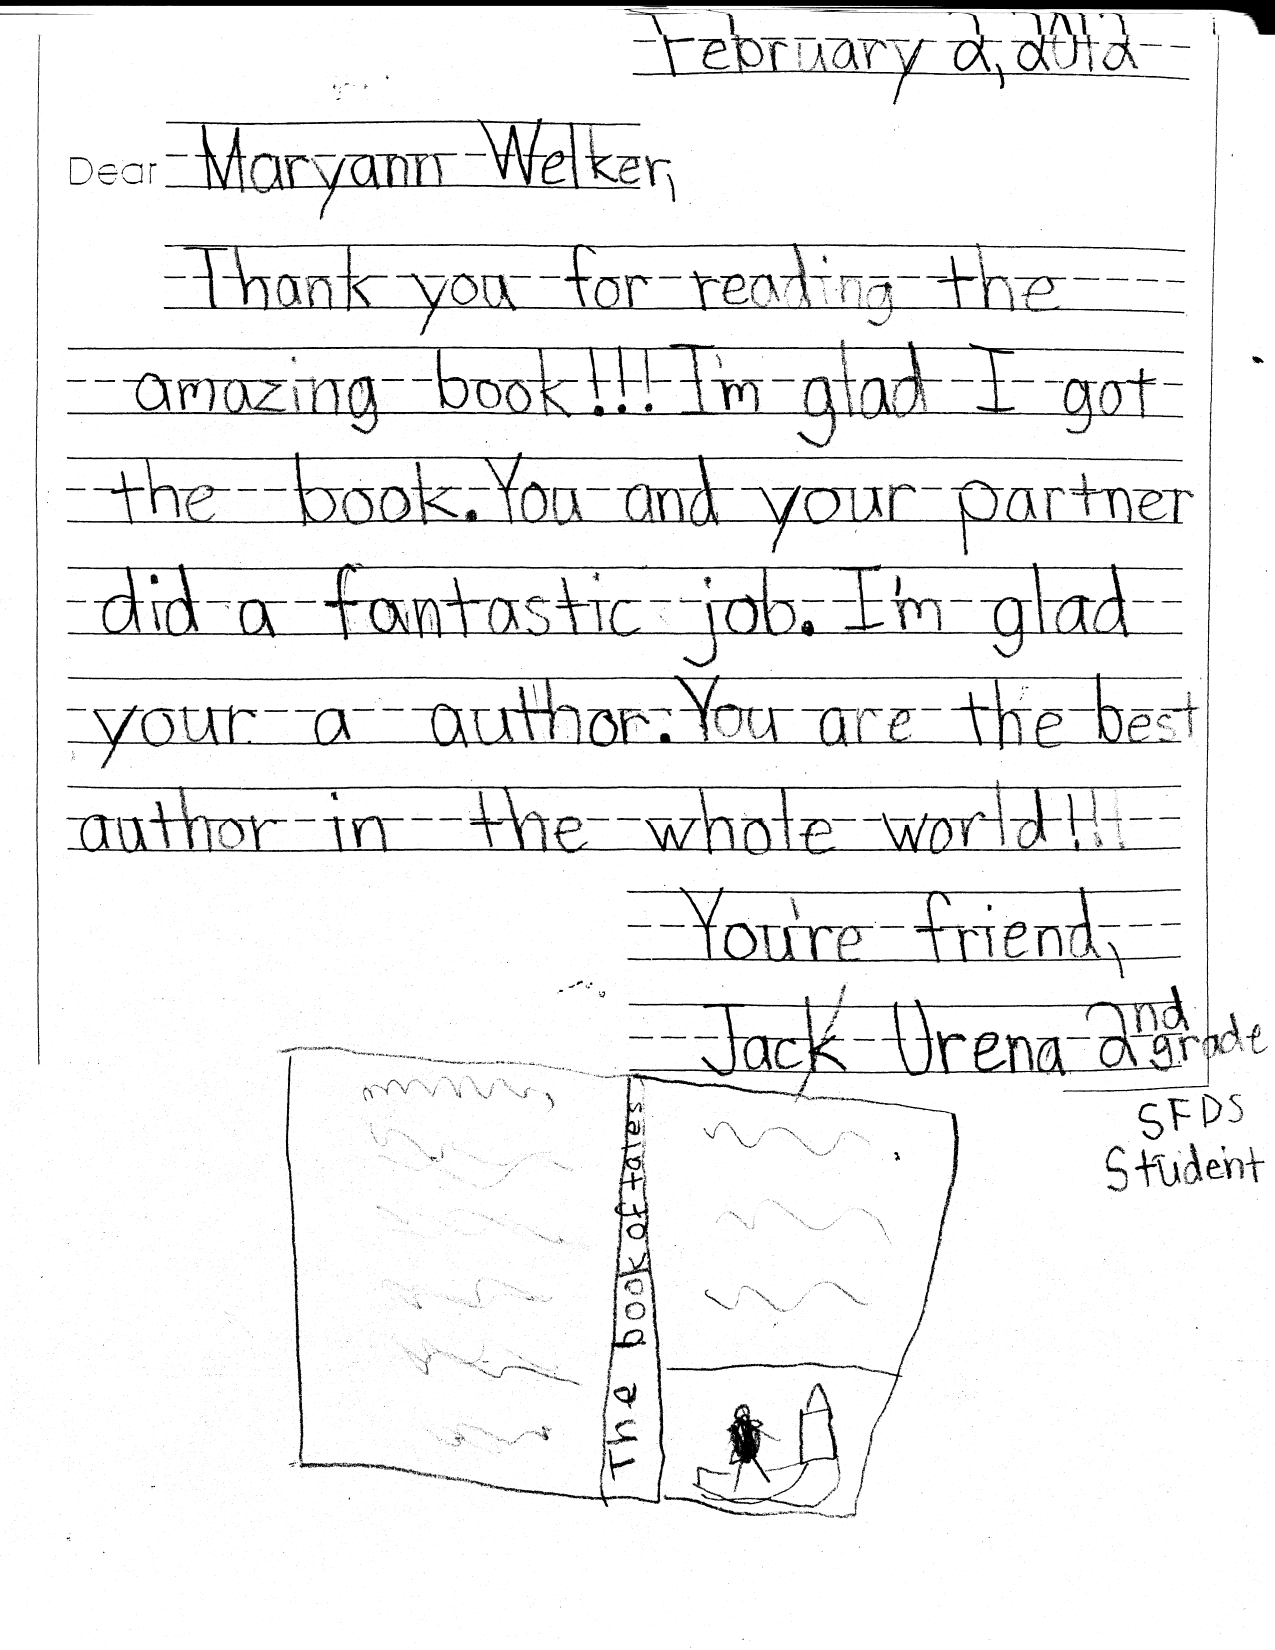 February 2, 2012
Dear Maryann Welker,
Thank you for reading the
amazing book!!! I'm glad I got
the book. You and your partner
did a fantastic job. I'm glad
your a author. You are the best
author in the whole world!!!
You're friend,
Jack Urena 2nd grade
SFDS
Student
The book of tales